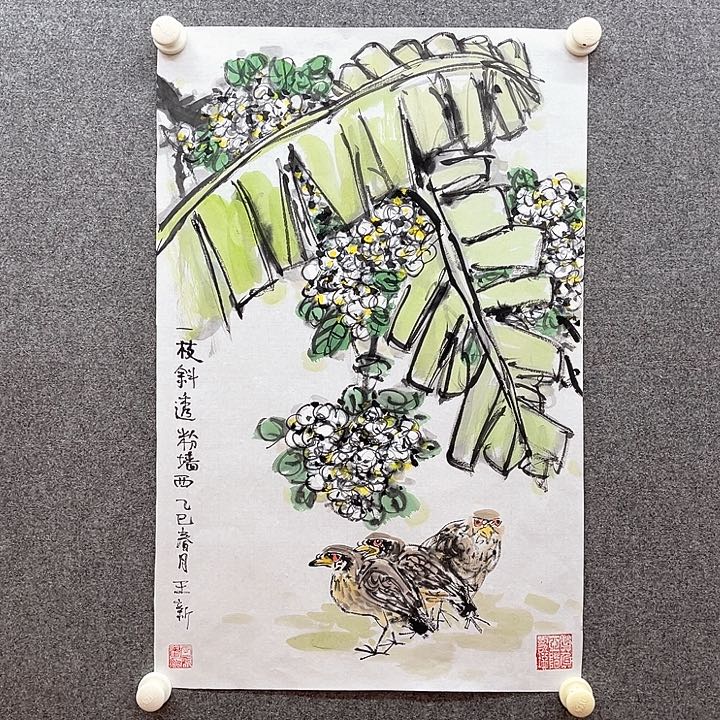 一枝斜透粉墙西 乙巳春月 王新